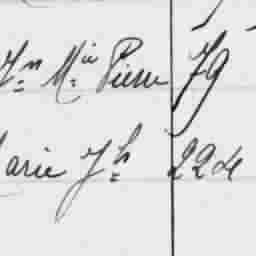 Jn Mie Pierre 79
Marie Jh 224